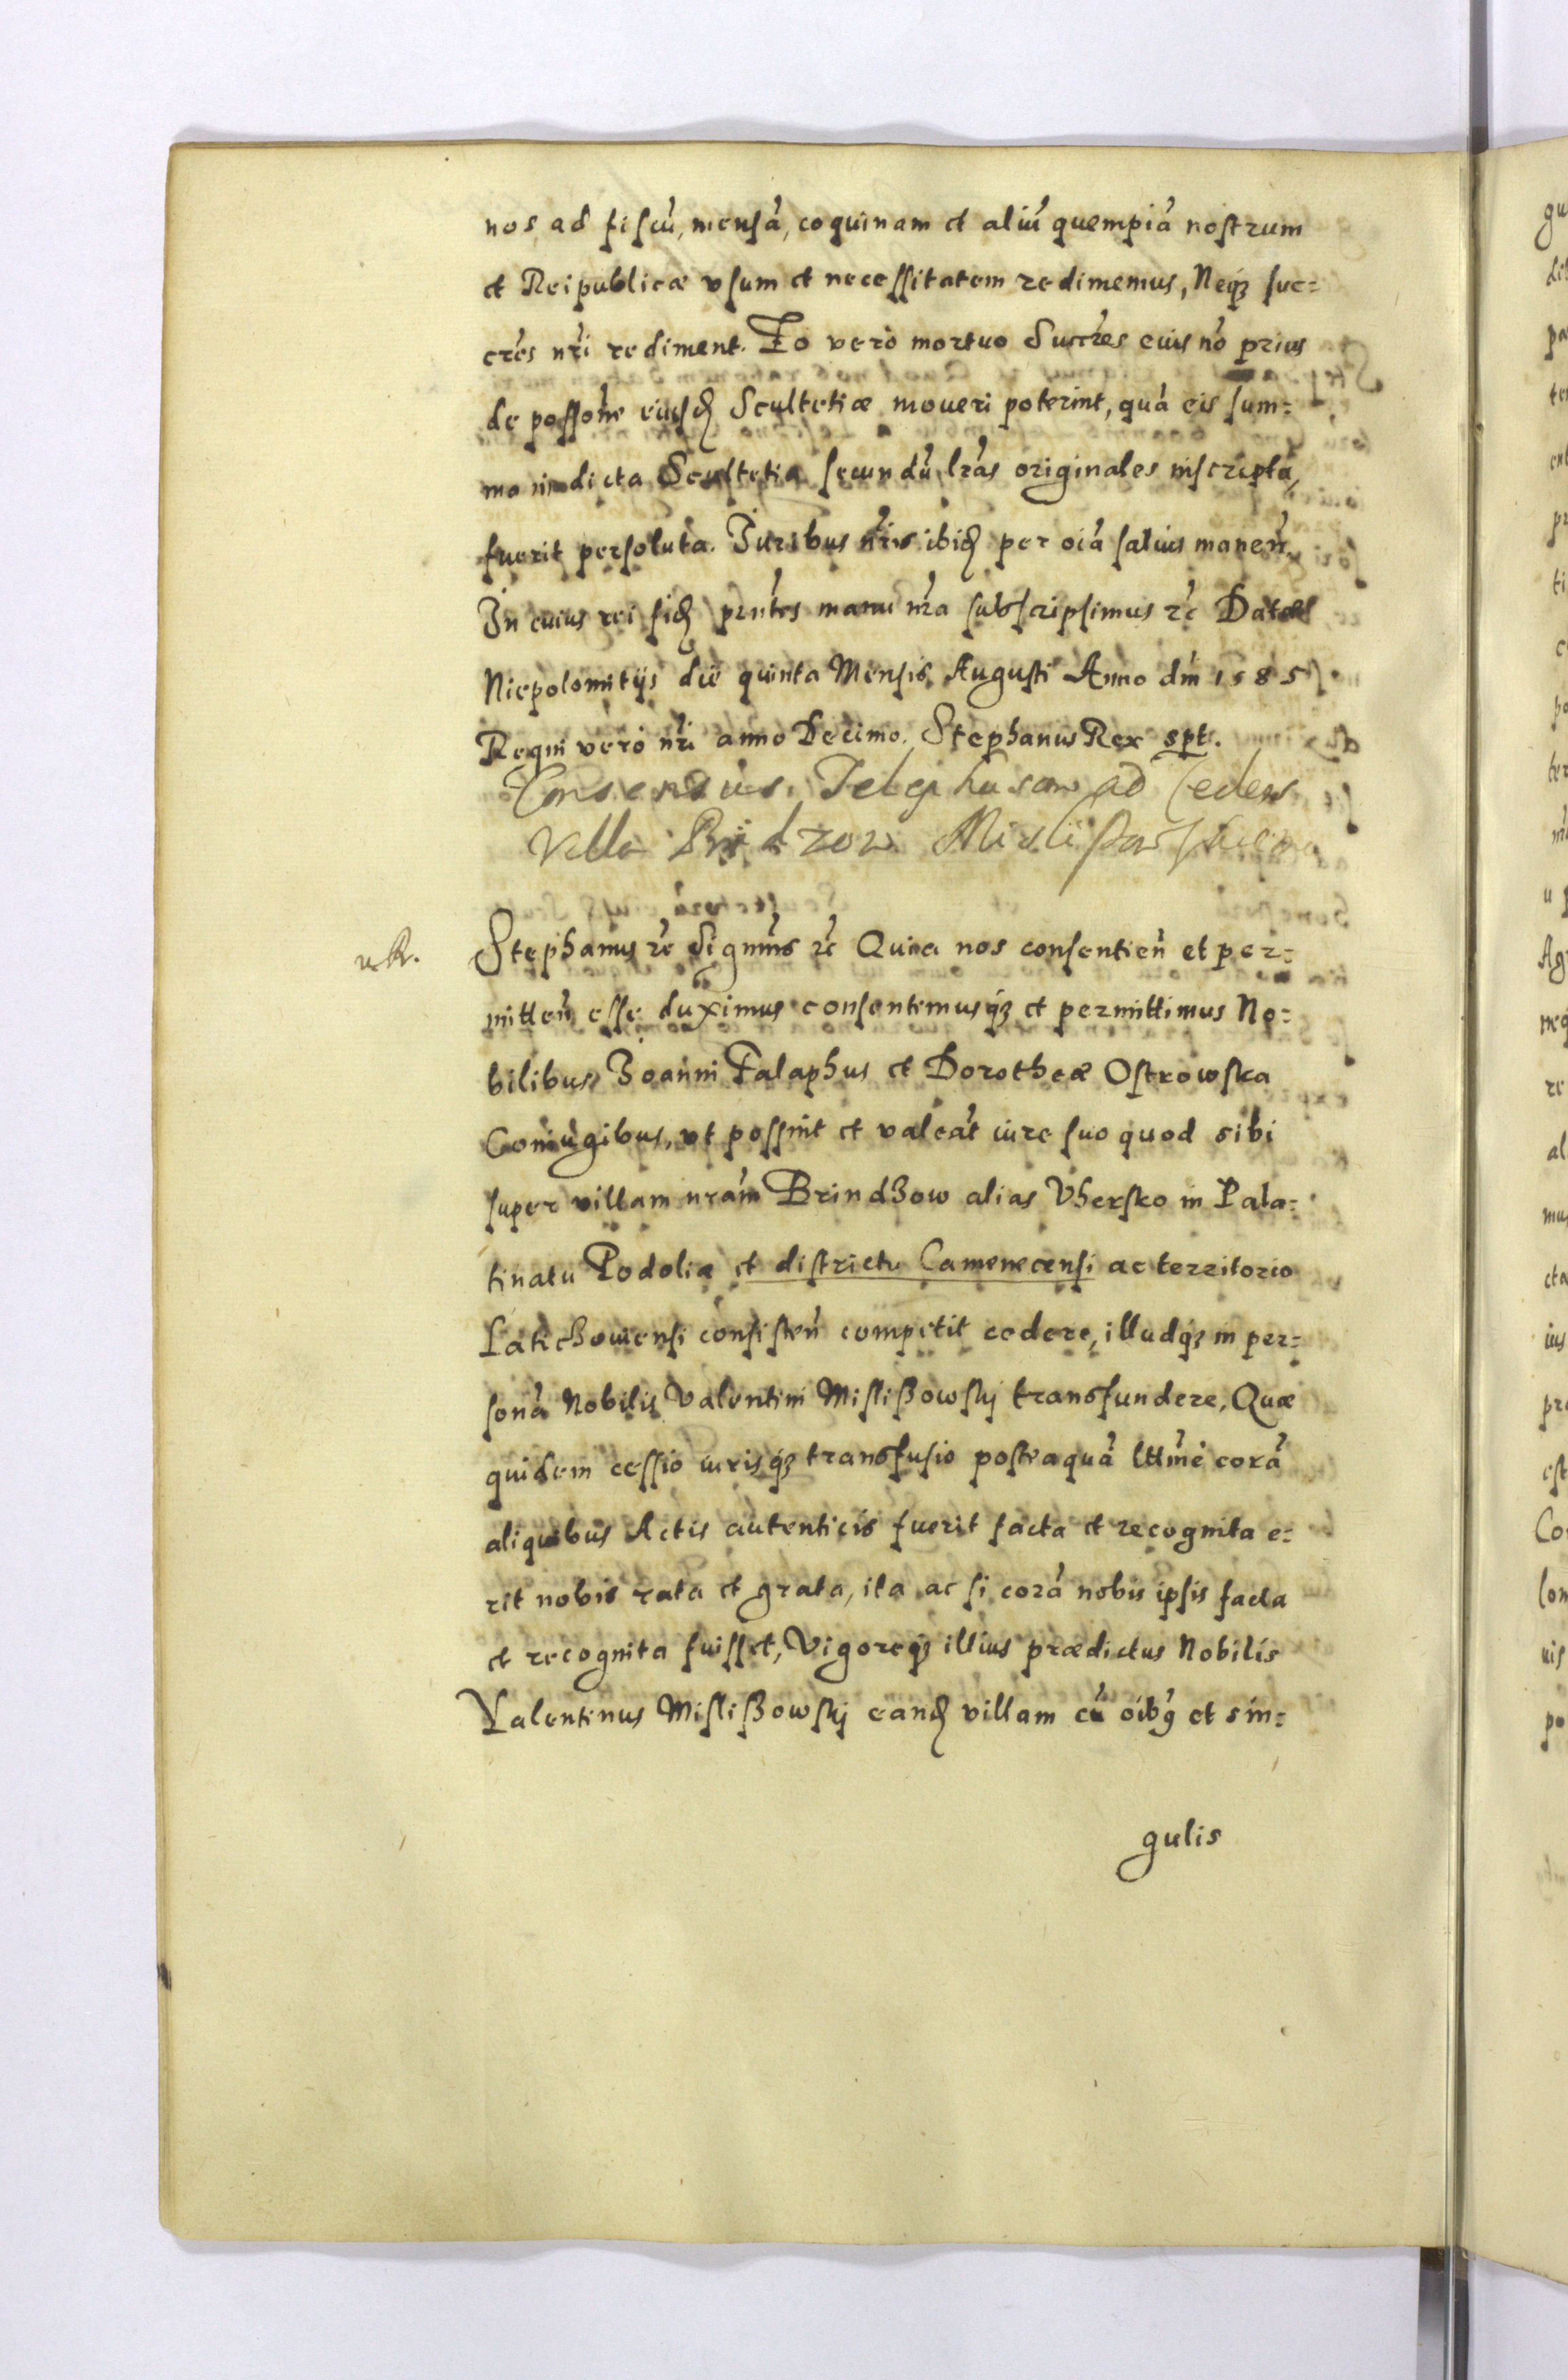 nos ad fiscũ, mensã, coquinam et aliũ quempiã nostrum
et Reipublicæ vsum et necessitatem redimemus, Neq3 suc=
cr̃es nr̃i rediment. Eo verò mortuo Succr̃es euis nõ prius
de possõne eiusd Scultetiæ moueri poterint, quã eis sum=
ma in dicta Scultetia secundũ lr̃as originales inscripta,
fuerit persoluta. Iuribus nr̃is ibid per oĩa saluis maneñ.
In cuius rei fid pñtes manu nr̃a subscripsimus r̃c Dat
Niepolomitijs die quinta Mensis Augusti Anno dñi 1585
Regni verò nr̃i anno Decimo. Stephanus Rex spt.
Consensus Telephusom ad Cedens
Villa Brindzow Mislissowskiemu
Stephanus r̃c Signim̃s r̃c Quia nos consentieñ et per=
mitteñ esse duximus consentimusq3 et permittimus No=
bilibus Joanni Falaphus et Dorotheæ Ostrowska
Coniugibus, vt possint et valeãt iure suo quod sibi
super villam nrãm Brindzow alias Vhersko in Pala=
tinatu Podoliæ et districtu Camenecensi ac territorio
Laticzouiensi consisteñ competit cedere, illudq3 in per=
sonã Nobilis Valentini Mislißowskj transfundere, Quæ
quidem cessio iurisq3 transfusio posteaquã lttim̃e corã
aliquibus Actis autenticis fuerit facta et recognita e=
rit nobis rata et grata, ita ac si corã nobis ipsis facta
et recognita fuisset, Vigoreq3 illius prædictus Nobilis
Valentinus Mislißowskj eand villam cũ oib9 et sin=
gulis